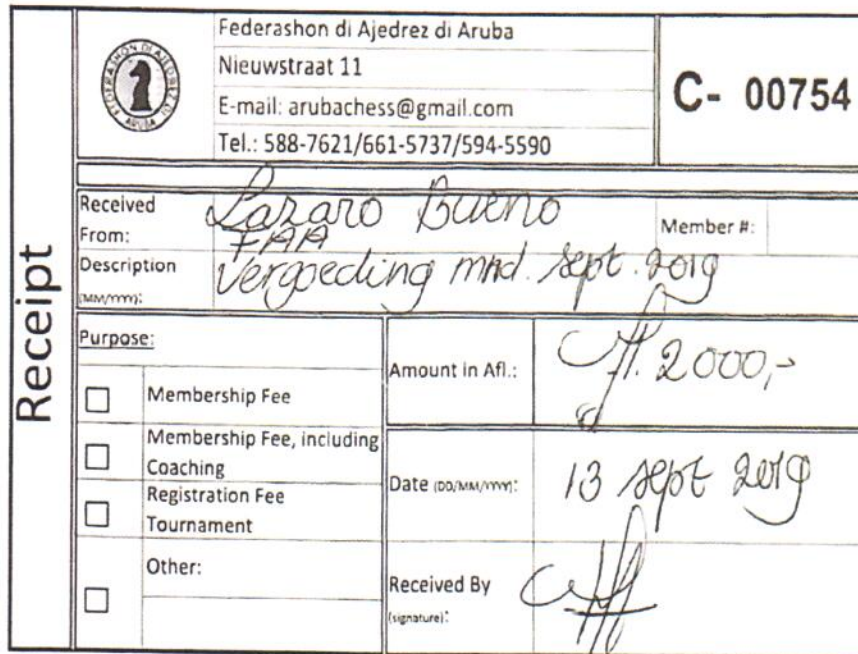 Receipt
FEDERASHON DI AJEDREZ DI ARUBA
Federashon di Ajedrez di Aruba
Nieuwstraat 11
E-mail: arubachess@gmail.com
Tel.: 588-7621/661-5737/594-5590
C- 00754
Received From: Lazaro Bueno
FAA
Member #:
Description (MM/YYYY): Vergoeding mnd. sept. 2019
Purpose:
Membership Fee
Membership Fee, including
Coaching
Registration Fee
Tournament
Other:
Amount in Afl.: Afl. 2000,-
Date (DD/MM/YYYY): 13 sept 2019
Received By
(signature):